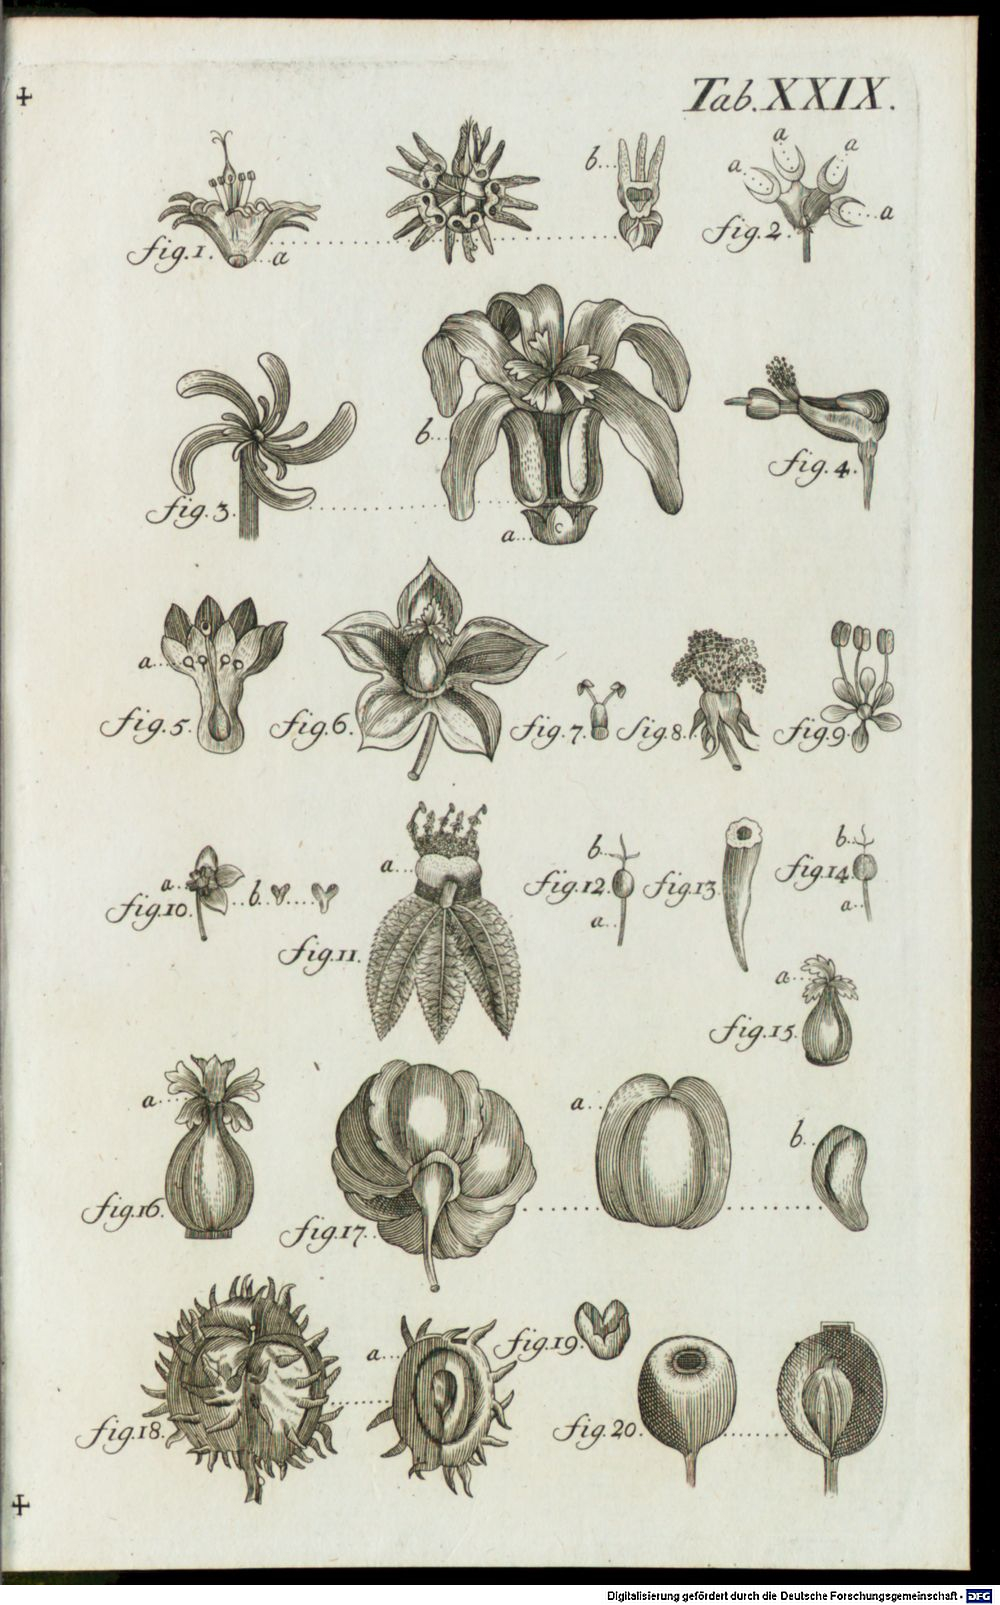 Tab. XXIX.
b
a
a
a
a
fig. 1.
a
fig. 2
b
fig. 3.
a
c
fig. 4.
a
fig. 5.
fig. 6.
fig. 7.
fig. 8.
fig. 9.
a
fig. 10.
b
a
fig. 11.
b
fig. 12.
a
fig. 13.
b
fig. 14.
a
a
fig. 15.
a
fig. 16.
fig. 17.
a
b
fig. 18.
a
fig. 19.
fig. 20.
Digitalisierung gefördert durch die Deutsche Forschungsgemeinschaft - DFG